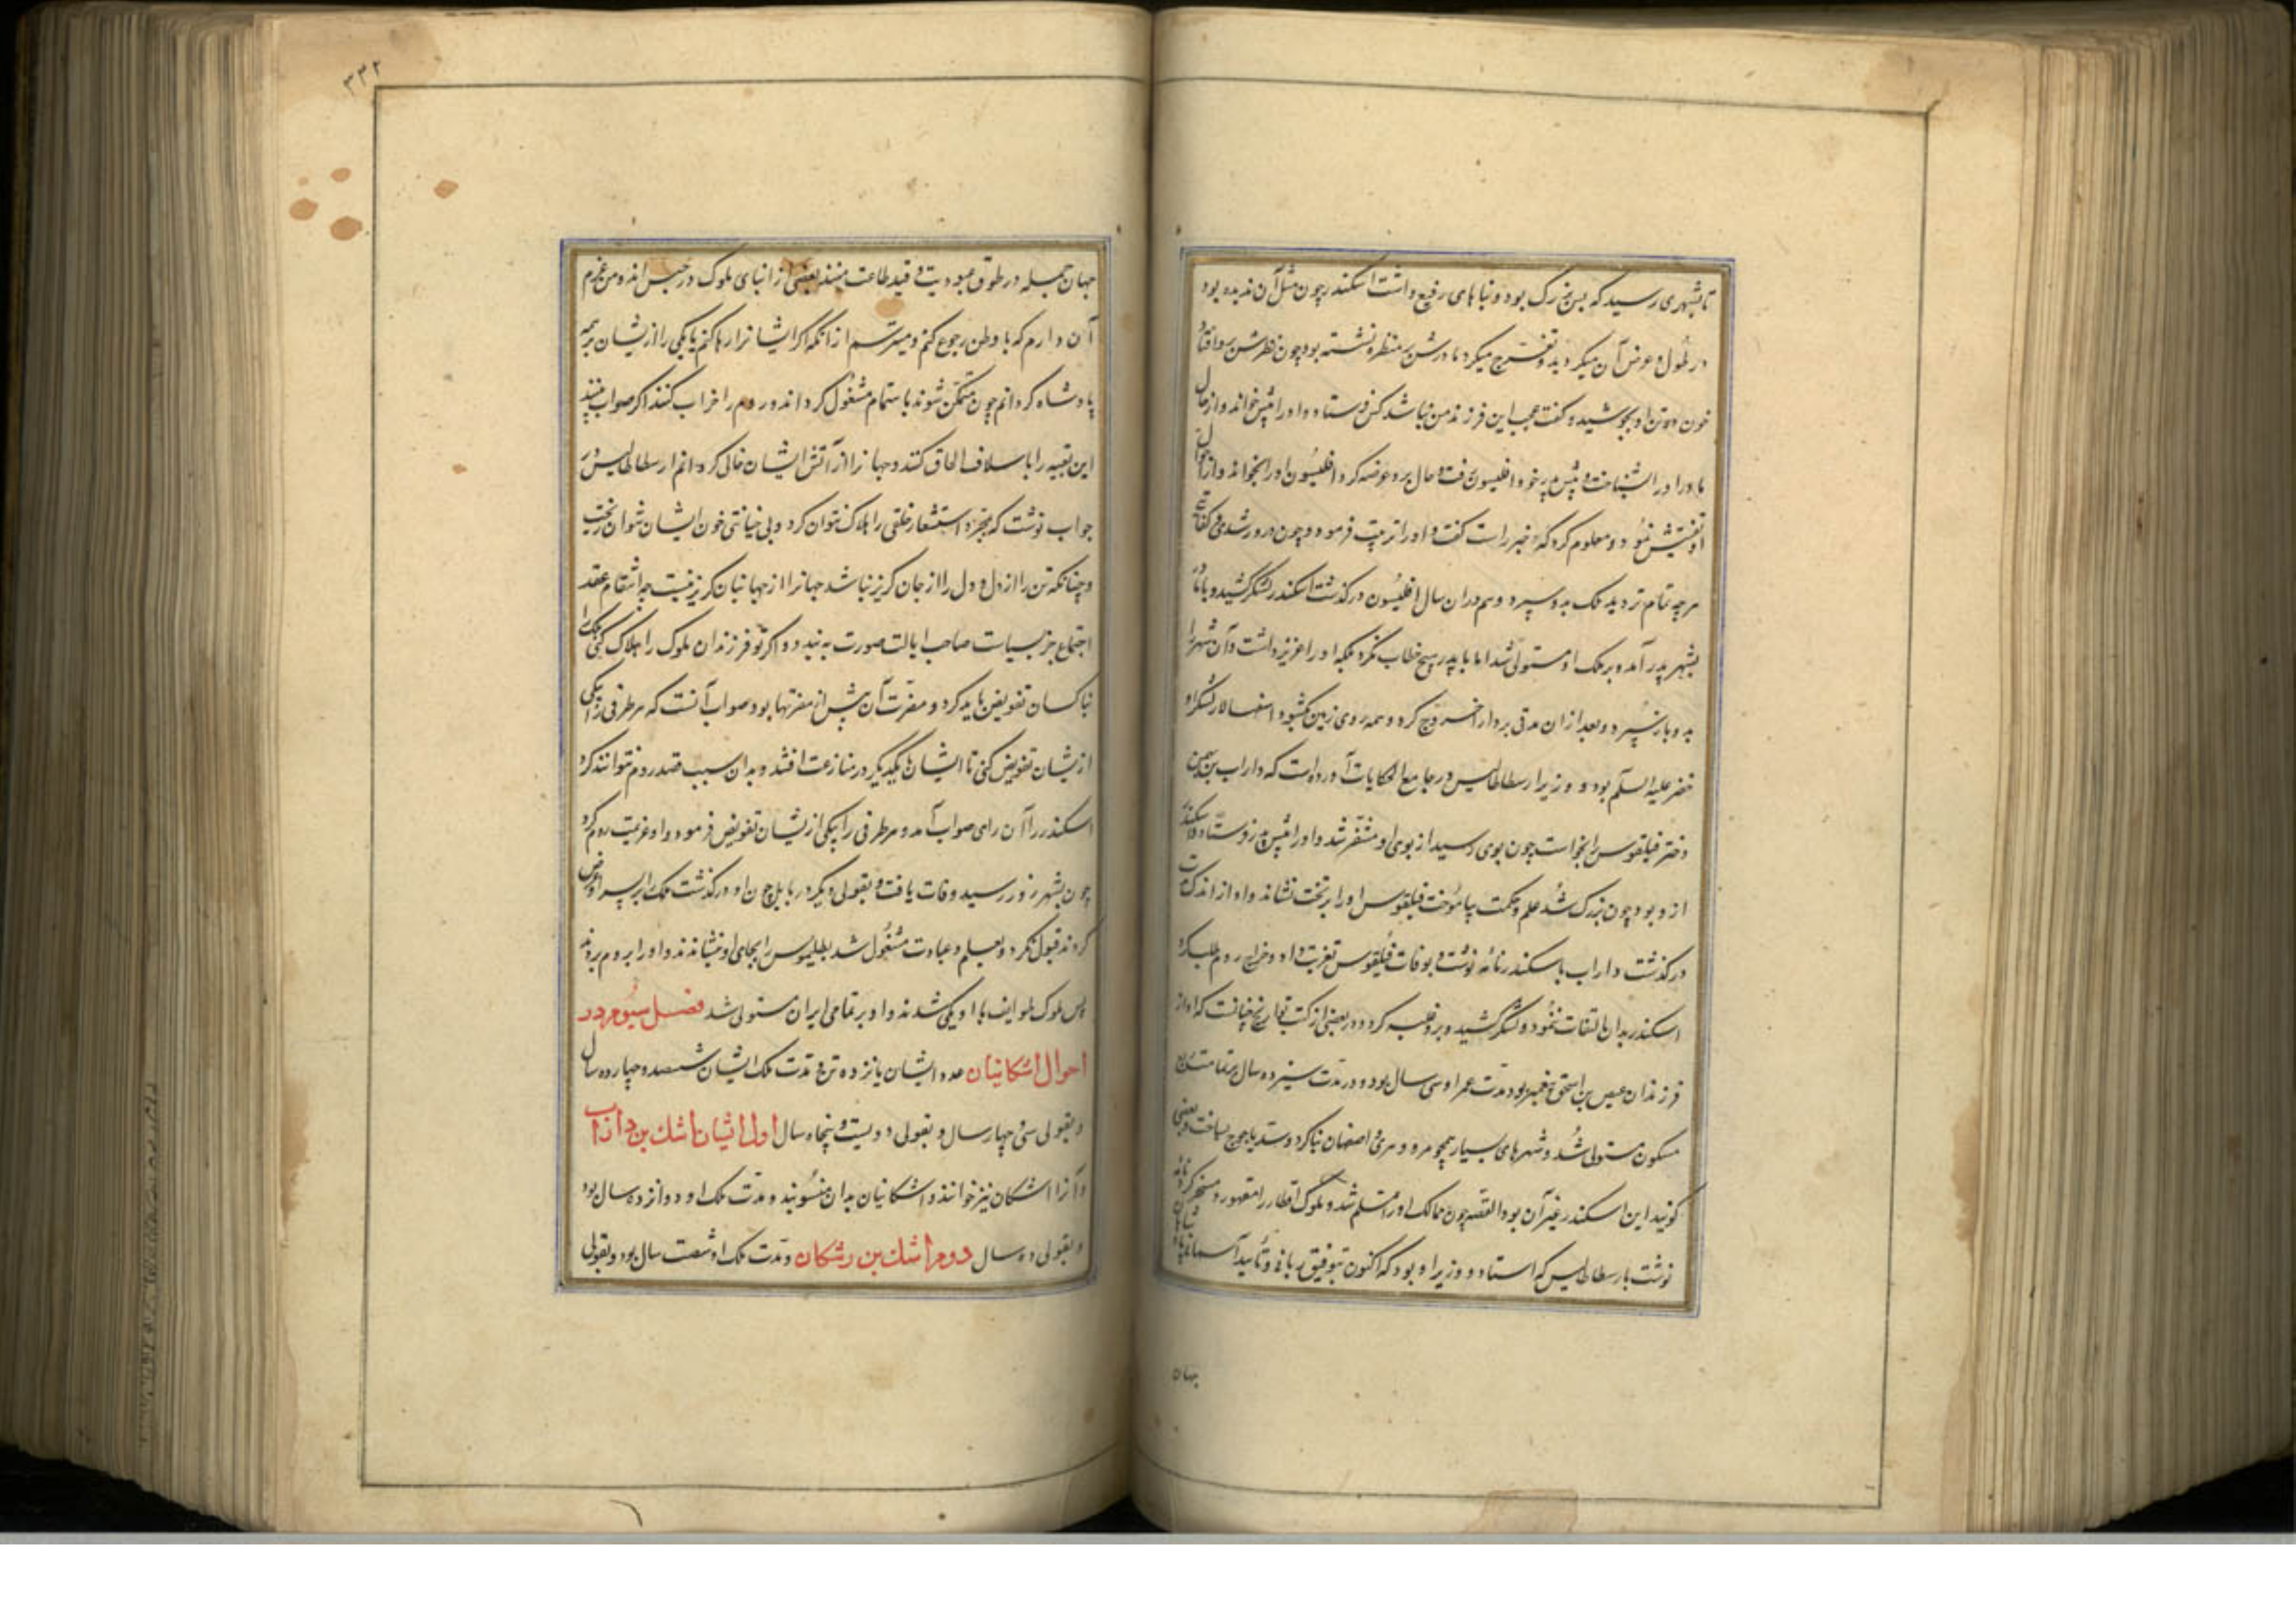 تا بشهری رسید که بس بزرک بود و بناهای رفیع داشت اسکندر چون مثل آن ندیده بود
در طول و عرض آن میکردید و تفرج میکرد مادرش بر منظره نشسته بود چون نظرش بر و افتاد
خون در تن او بجوشید و کفت عجب این فرزند من نباشد کس فرستاد و او را پیش خواند و از حال
مادر او را بشناخت و پیش پدر خود افلیسون رفت و حال برو عرضه کرد افلیسون او را بخواند و از احوال
او تفتیش نمود و معلوم کرد که دختر راست کفت و او را تربیت فرمود و چون درو رشدی و کفایتی
هر چه تمام تر دید ملک بدو سپرد و هم دران سال افلیسون درکذشت اسکندر لشکر کشید و
بشهر پدر آمد و بر ملک او مستولی شد اما با پدر هیچ خطاب نکرد بلکه او را عزیز داشت و آن شهر را
بدو باز سپرد و بعد از ان مدتی بر دارا خروج کرد و همه روی زمین بکشود اسفهسالار لشکر او
خضر علیه السلم بود و وزیر ارسطاطالیس در جامع الحکایات آورده است که داراب بن بهمن
دختر فیلقوس را بخواست چون بوی رسید از بوی او متنفر شد و او را پیش پدر فرستاد و اسکندر
ازو بود چون بزرک شد علم و حکمت بیاموخت فیلقوس او را بر تخت نشاند و او از اندک مدت
درکذشت داراب باسکندر نامه نوشت و بوفات فیلقوس تعزیت داد و خراج روم طلب کرد
اسکندر بدان التفات ننمود و لشکر کشید و برو غلبه کرد و در بعضی از کتب تواریخ چنانست که او از
فرزندان عیص بن اسحق پیغمبر بود مدت عمر او سی سال بود و در مدت سیزده سال بر تمامت ربع
مسکون مستولی شد و شهرهای بسیار همچو مرو و هری و اصفهان بنا کرد و سد یاجوج بساخت و بعضی
کویند این اسکندر غیر آن بود القصه چون ممالک او را مسلم شد و ملوک اقطار را مقهور و مسخر کرد نامه
نوشت بارسطاطالیس که استاد و وزیر او بود که اکنون بتوفیق ربانی و تأیید آسمانی
جهان
۳۳۲
جهان جمله در طوق عبودیت و قید طاعت منند بعضی از ابنای ملوک در حبس اند و من عزم
آن دارم که با وطن رجوع کنم و میترسم از انکه اکر ایشانرا رها کنم یا یکی را ازیشان بر همه
پادشاه کردانم چون متمکن شوند با ستمام مشغول کردند و روم را خراب کنند اکر صواب بیند
این بقیه را با سلاف الحاق کند و جهانرا از آتش ایشان خالی کردانم ارسطاطالیس در
جواب نوشت که بمجرد استشعار خلقی را هلاک نتوان کرد و بی خیانتی خون ایشان نتوان ریخت
و چنانکه تن را از دل و دل را از جان کریز نباشد جهانرا از جهانبانان کریز نیست چه انتظام عقد
اجتماع جز بسیاست صاحب ایالت صورت نبندد و اکر تو فرزندان ملوک را هلاک کنی ملک را
بناکسان تفویض باید کرد و مضرت آن بیش از مضرتها بود صواب آنست که هر طرفی را بیکی
ازیشان تفویض کنی تا ایشان با یکدیکر در منازعت افتند و بدان سبب قصد روم نتوانند کرد
اسکندر را آن رای صواب آمد و هر طرفی را بیکی ازیشان تفویض فرمود و او عزیمت روم کرد
چون بشهر زور رسید وفات یافت و بقولی دیکر در بابل چون او درکذشت ملک بر پسر او عرض
کردند قبول نکرد و بعلم و عبادت مشغول شد بطلیموس را بجای او بنشاندند و او را بروم بردند
پس ملوک طوایف با او یکی شدند و او بر تمامی ایران مستولی شد فصل سیوم در
احوال اشکانیان عدد ایشان پانزده تن و مدت ملک ایشان ششصد و چهارده سال
و بقولی سی و چهار سال و بقولی دویست و پنجاه سال اول ایشان اشک بن داراب
و آنرا اشکان نیز خوانند و اشکانیان بدان منسوبند و مدت ملک او دوازده سال بود
و بقولی ده سال دوم اشک بن رشکان و مدت ملک او شصت سال بود و بقولی